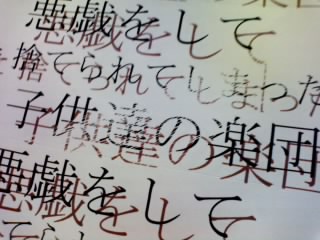 悪戯をして
捨てられてしまった
子供達の楽団
悪戯をして